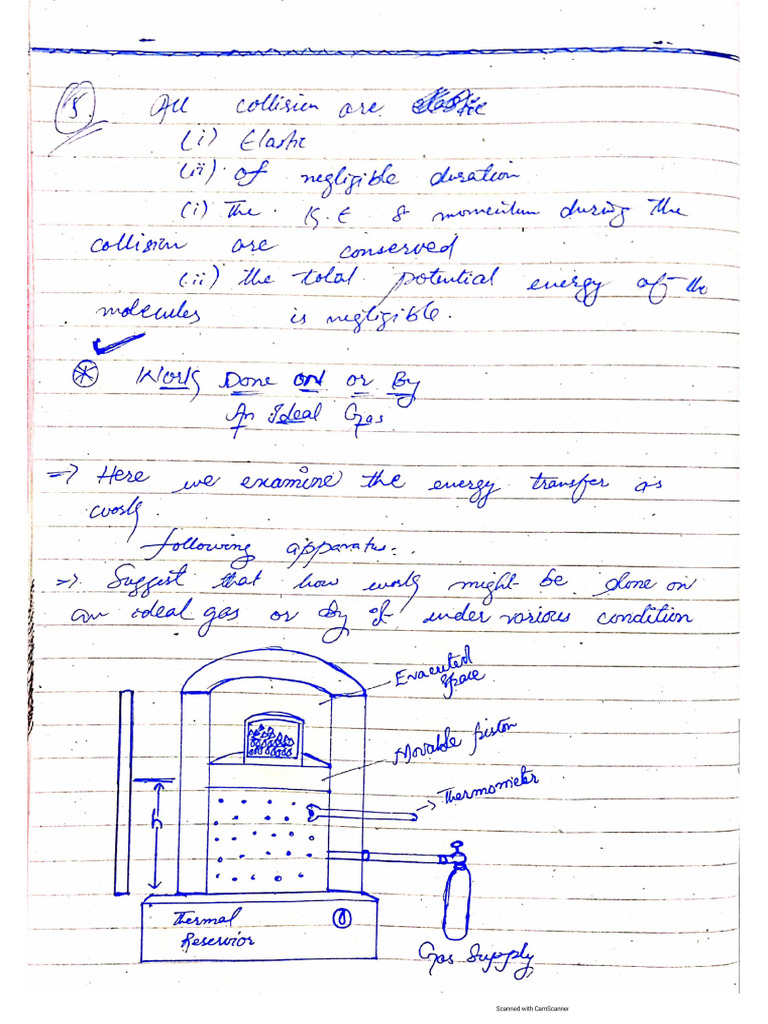 5. All collision are
(i) Elastic
(ii) of negligible duration
(i) The K.E & momentum during the
collision are conserved
(ii) the total potential energy of the
molecules is negligible.
Work Done on or By
An Ideal Gas
⇒ Here we examine the energy transfer as
work
following apparatus.
⇒ Suggest that how work might be done on
an ideal gas or by it under various condition
Evacuted
Space
Movable piston
→ Thermometer
h
Thermal
Reservior
Gas Supply
Scanned with CamScanner